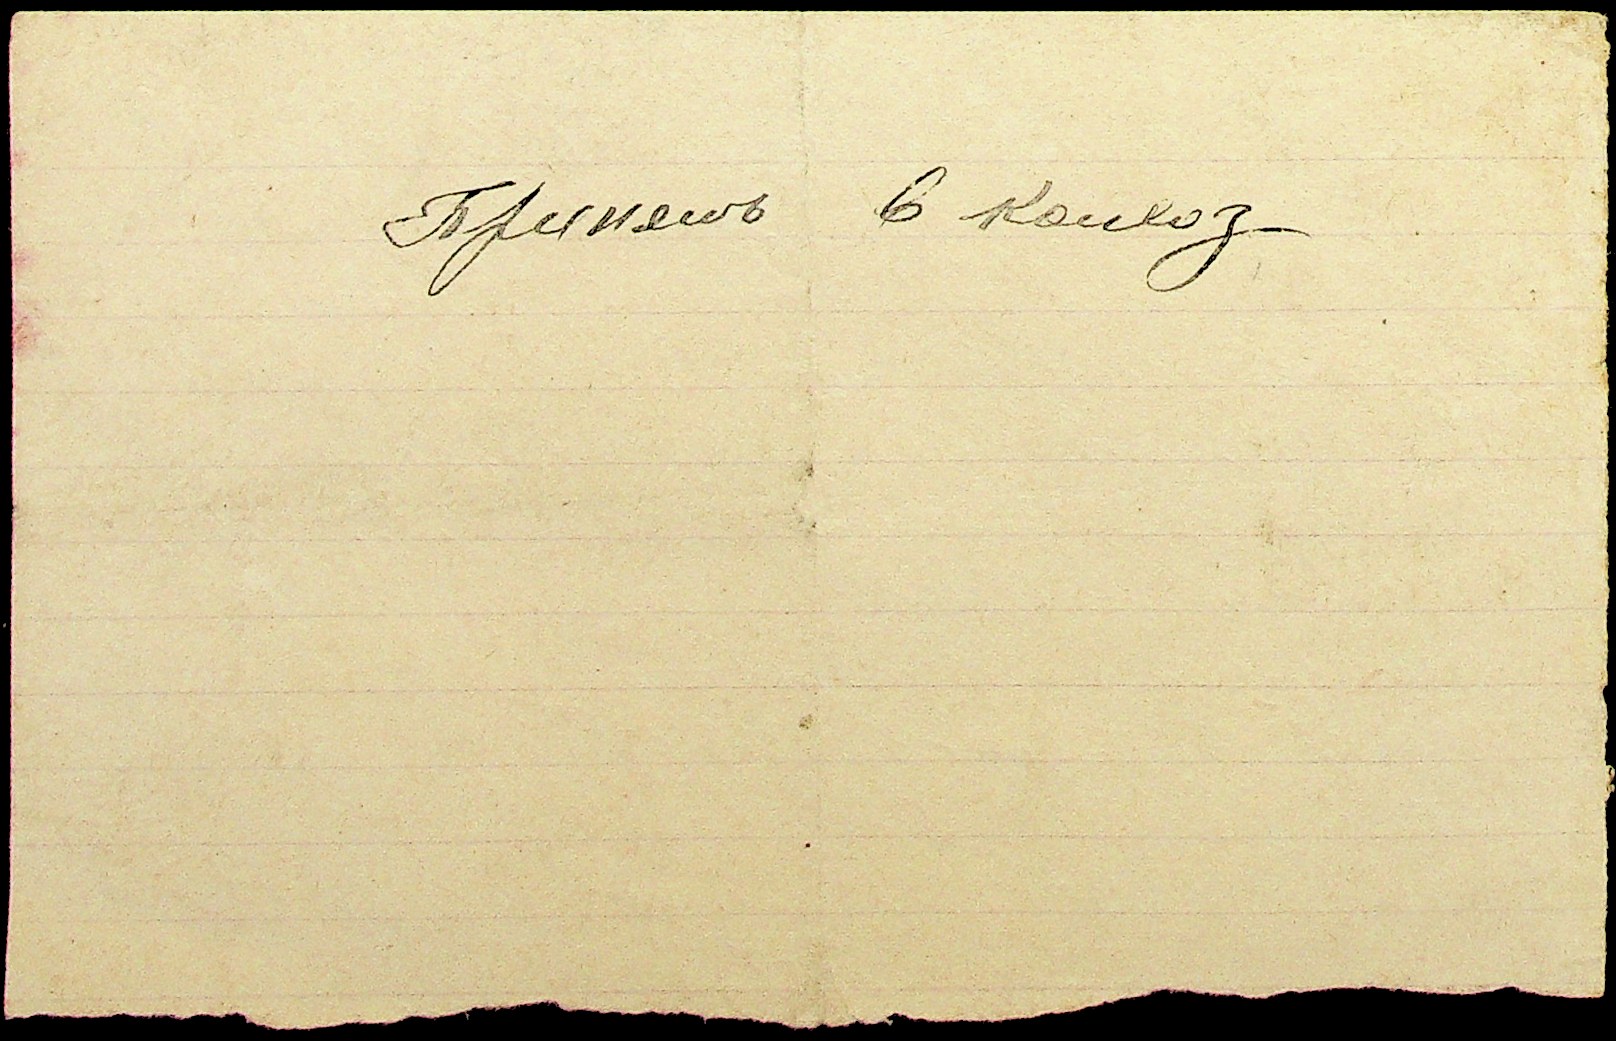 Принять в колхоз